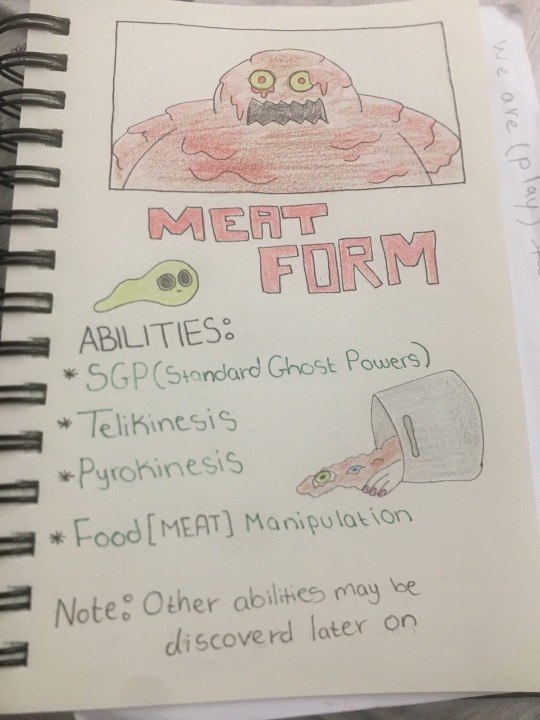 MEAT
FORM
ABILITIES:
* SGP (Standard Ghost Powers)
* Telikinesis
* Pyrokinesis
* Food [MEAT] Manipulation
Note: Other abilities may be
discoverd later on
We are (play)